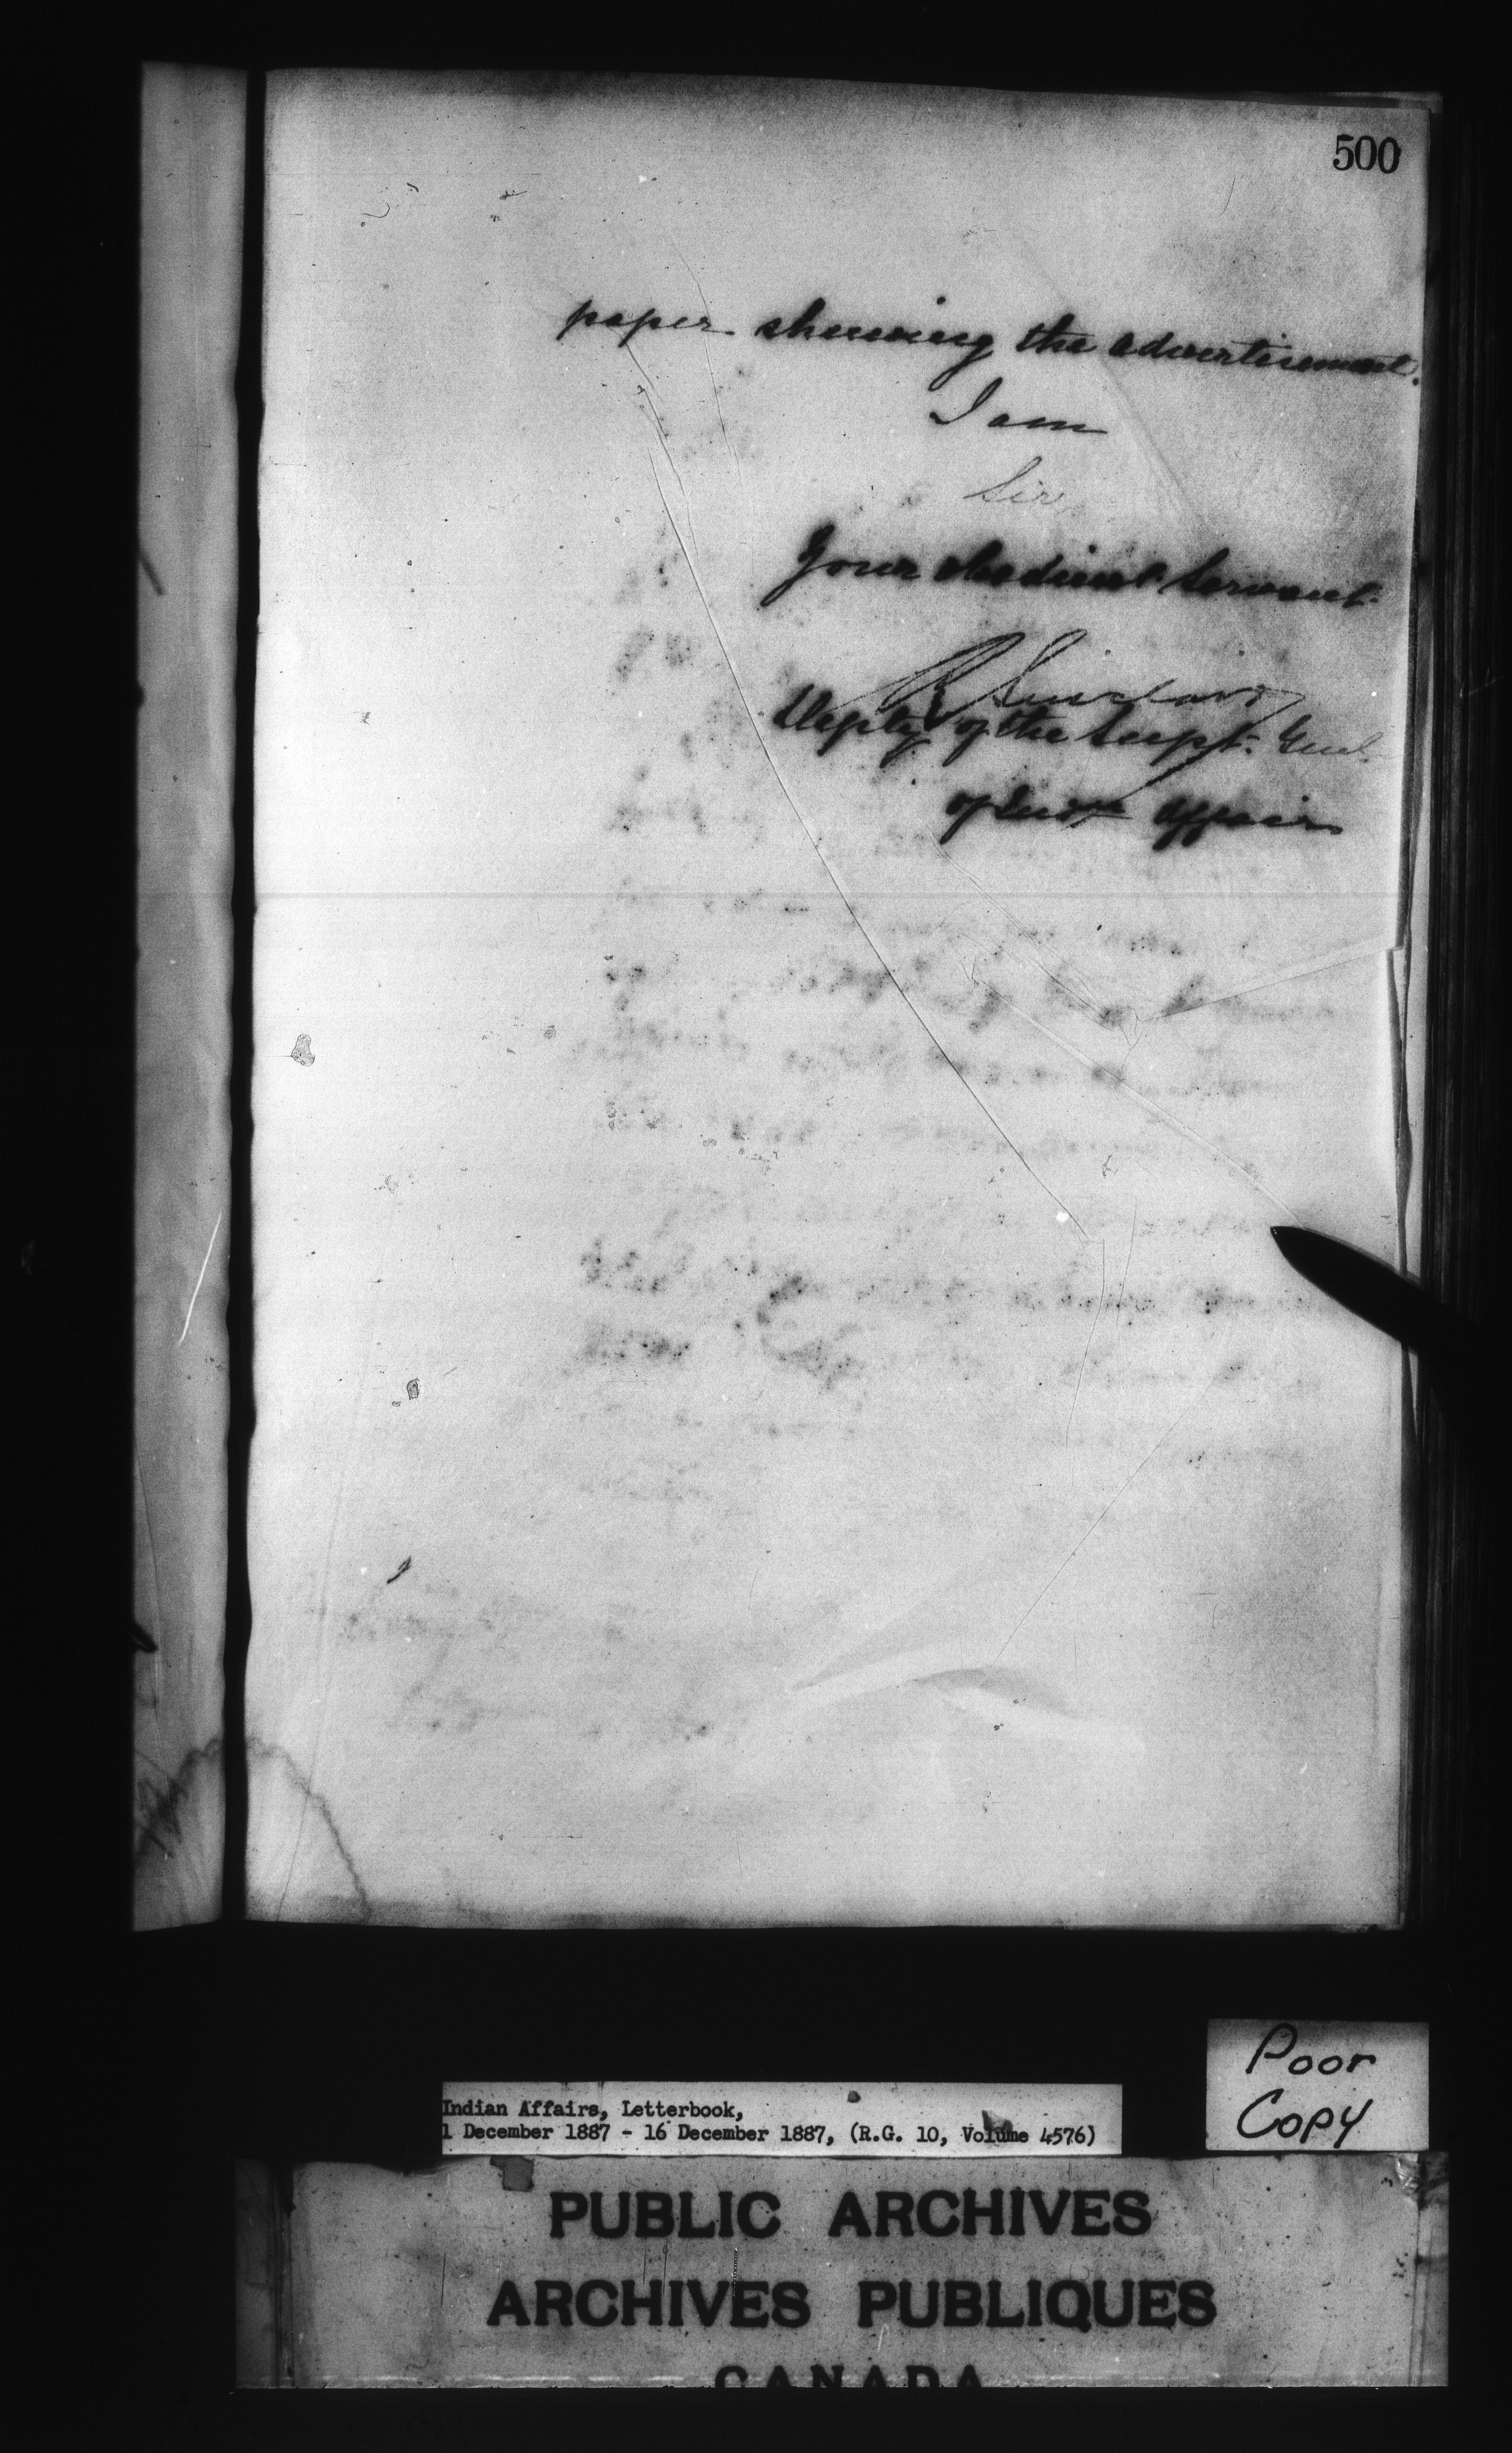 500
paper shewing the advertisement.
I am
Sir,
Your obedient Servant.
R Sinclair
Depty of the Supt. Genl
of Indn Affairs
Poor
Copy
Indian Affairs, Letterbook,
1 December 1887 - 16 December 1887, (R.G. 10, Volume 4576)
PUBLIC ARCHIVES
ARCHIVES PUBLIQUES
CANADA